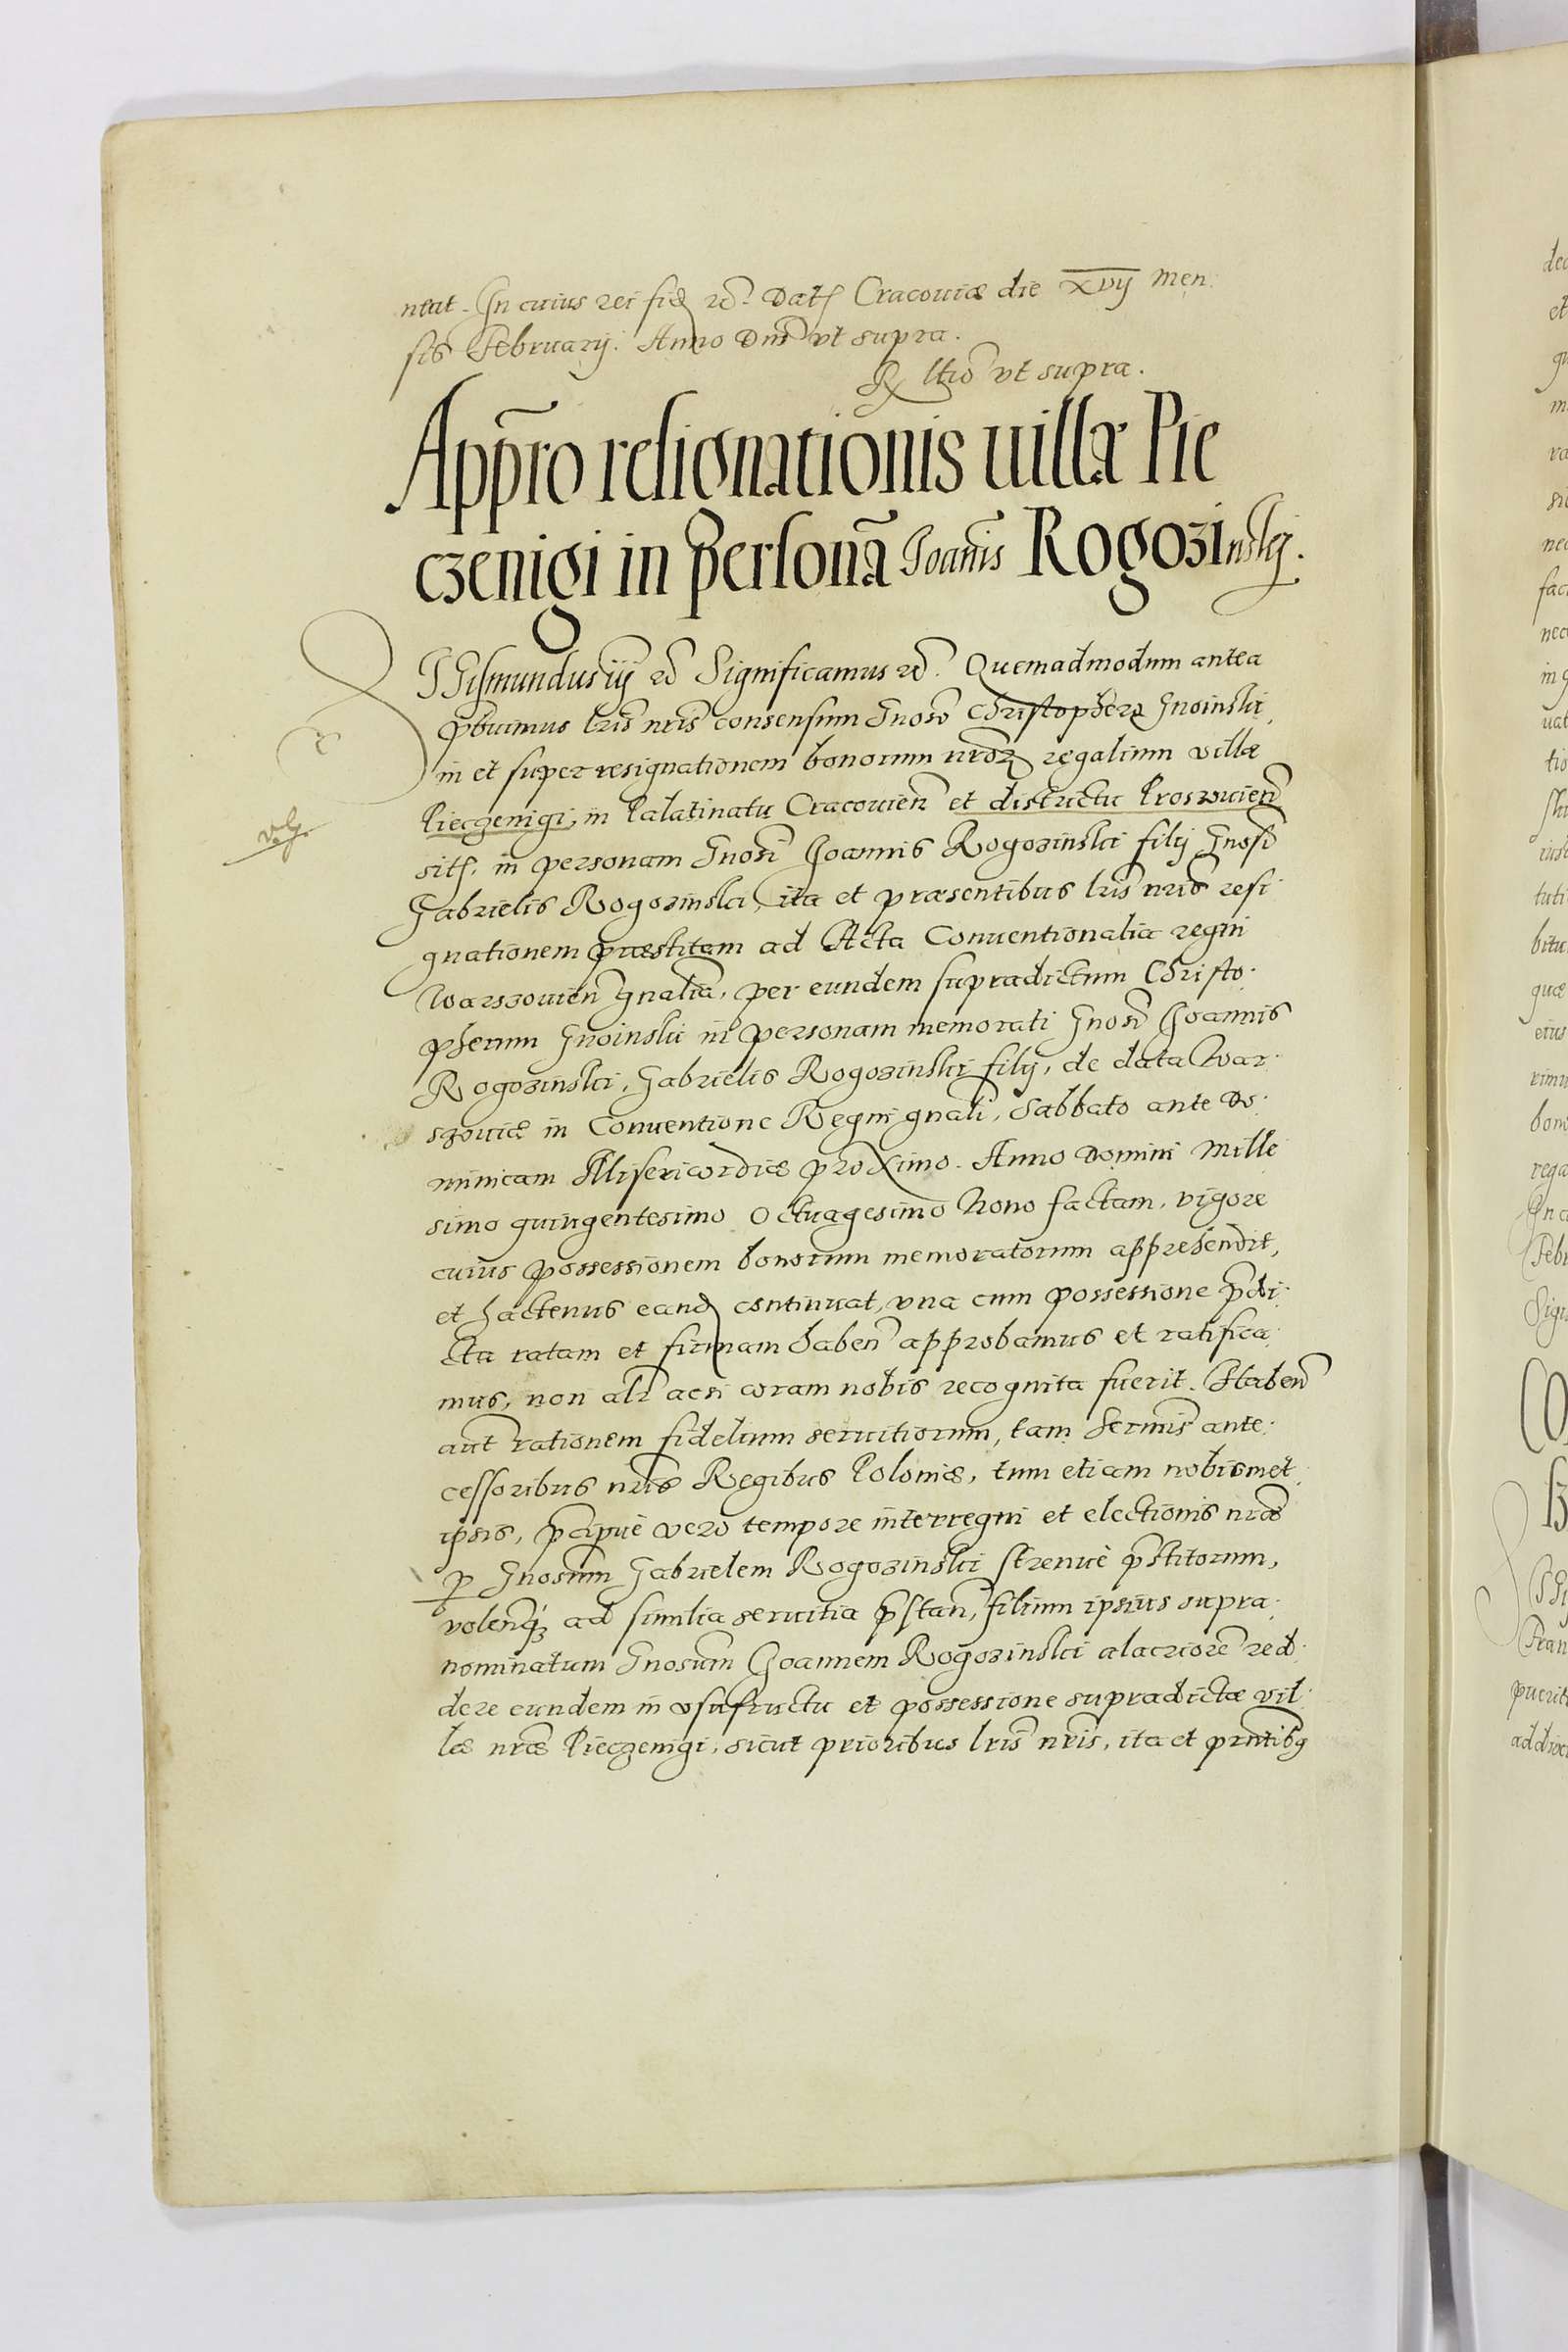 neat. In cuius rei fid̃ rc̃. Dat̃ Cracouiæ die xvij Men.
sis Februarij. Anno Dnĩ vt supra.
R̃ ltio vt supra.
App̃ro resignationis uillæ Pie
czenigi in personã Joannis Rogozinskÿ.
SIGismundus iij rc̃ Significamus rc̃. Quemadmodum antea
p̃buimus lrĩs nrĩs consensum Gnoso Christophero Gnoinski
in et super resignationem bonorum nrõꝝ regalium villæ
Pieczenigi, in Palatinatu Cracouieñ et districtu Proszouieñ
vlg.
sit̃. in personam Gnosĩ Joannis Rogozinski filij Gnosĩ
Gabrielis Rogozinski, ita et præsentibus lrĩs nrĩs resi
gnationem præstitam ad Acta Conuentionalia regni
Warszouieñ gnãlia, per eundem supradictum Christo.
pherum Gnoinski in personam memorati Gnosĩ Joannis
Rogozinski, Gabrielis Rogozinski filij, de data War.
szouiæ in Conuentione Regni gnãli, Sabbato ante Do.
minicam Misericordiæ proximo. Anno Domini Mille
simo quingentesimo Octuagesimo Nono factam, vigore
cuius possessionem bonorum memoratorum apprehendit,
et hactenus eand̃ continuat, vna cum possessione p̃di.
cta ratam et firmam habeñ approbamus et ratifica.
mus, non alr̃ acsi coram nobis recognita fuerit. Habeñ
aut̃ rationem fidelium seruitiorum, tam Sermĩs ante.
cessoribus nrĩs Regibus Poloniæ, tum etiam nobismet
ipsis, p̃cipuè vero tempore interregni et electionis nræ̃
ꝑ Gnosum̃ Gabrielem Rogozinski strenuè p̃stitorum,
volenq́ꝫ ad similia seruitia p̃stañ, filium ipsius supra.
nominatum Gnosum̃ Joannem Rogozinski alacriorẽ red.
dere eundem in vsufructu et possessione supradictæ vil.
læ nræ̃ Pieczenigi, sicut prioribus lrĩs nrĩs, ita et prñtibꝰ